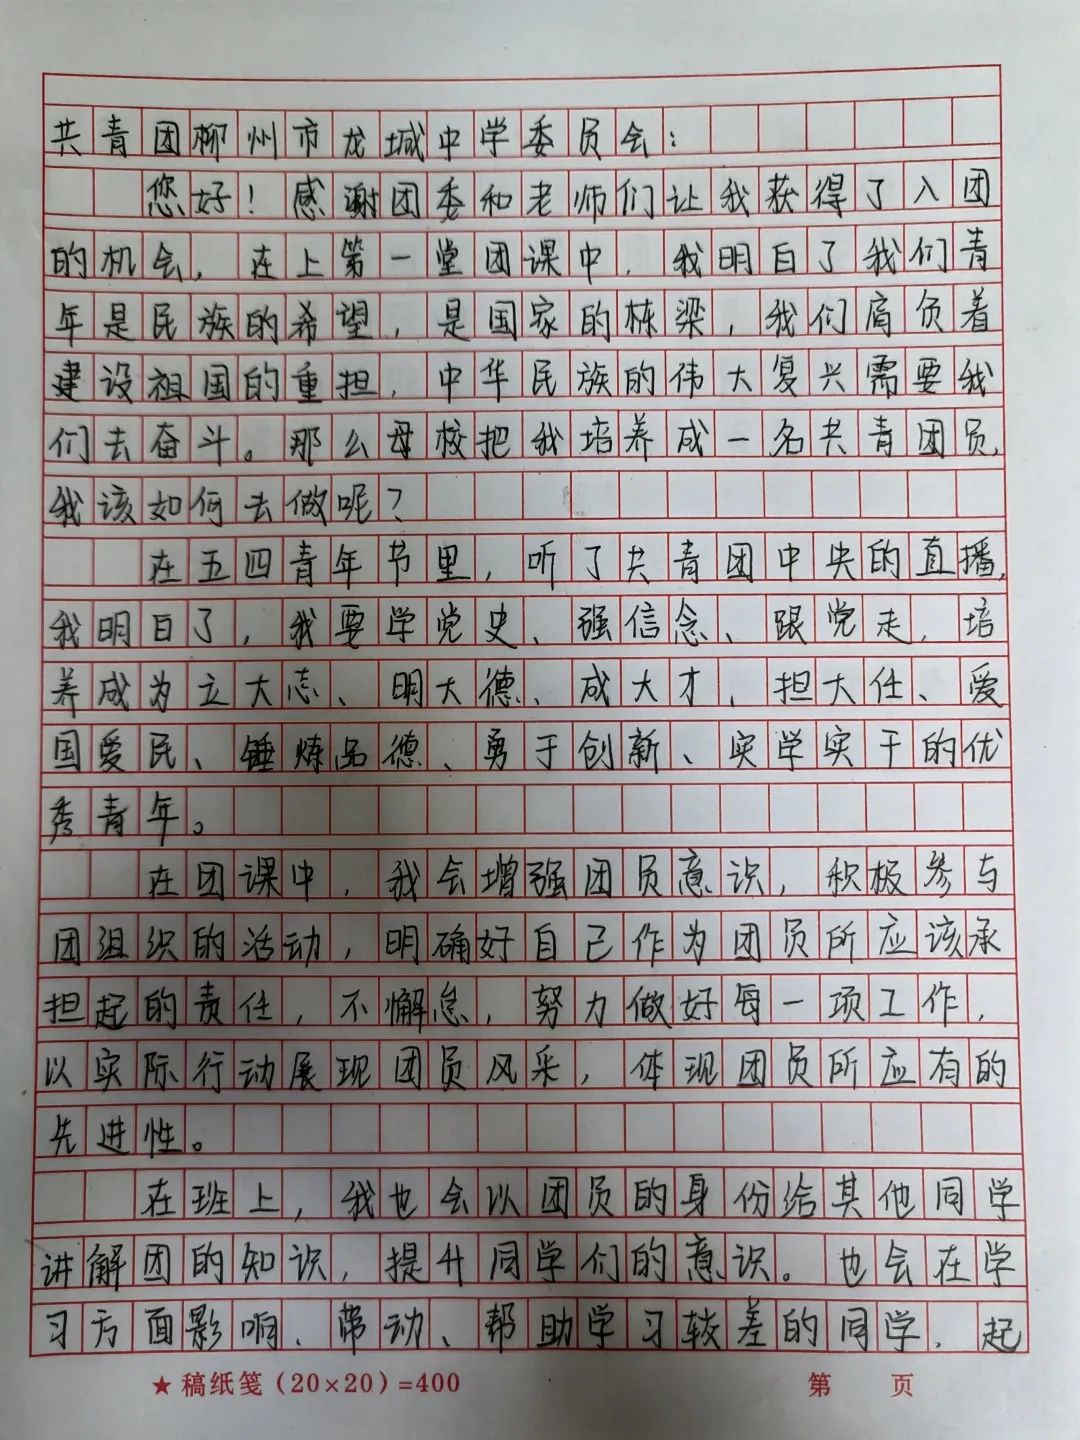 共青团柳州市龙城中学委员会：
您好！感谢团委和老师们让我获得了入团
的机会，在上第一堂团课中，我明白了我们青
年是民族的希望，是国家的栋梁，我们肩负着
建设祖国的重担，中华民族的伟大复兴需要我
们去奋斗。那么母校把我培养成一名共青团员，
我该如何去做呢？
在五四青年节里，听了共青团中央的直播，
我明白了，我要学党史、强信念、跟党走，培
养成为立大志、明大德、成大才、担大任、爱
国爱民、锤炼品德、勇于创新、实学实干的优
秀青年。
在团课中，我会增强团员意识，积极参与
团组织的活动，明确好自己作为团员所应该承
担起的责任，不懈怠，努力做好每一项工作，
以实际行动展现团员风采，体现团员所应有的
先进性。
在班上，我也会以团员的身份给其他同学
讲解团的知识，提升同学们的意识。也会在学
习方面影响、带动、帮助学习较差的同学，起
★稿纸笺(20×20)=400 第 页